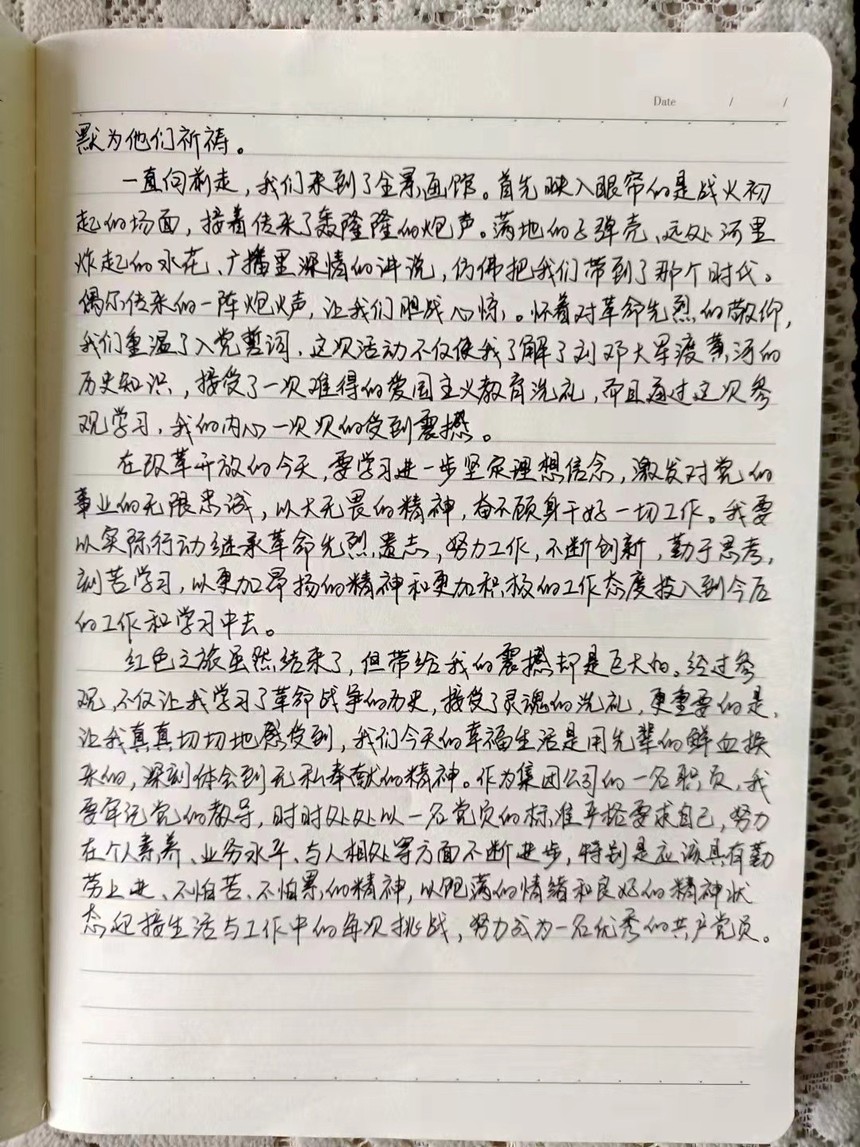 Date / /
默为他们祈祷。
一直向前走，我们来到了全景画馆。首先映入眼帘的是战火初
起的场面，接着传来了轰隆隆的炮声。落地的子弹壳、远处河里
炸起的水花、广播里深情的讲说，仿佛把我们带到了那个时代。
偶尔传来的一阵炮火声，让我们胆战心惊。怀着对革命先烈的敬仰，
我们重温了入党誓词，这次活动不仅使我了解了刘邓大军渡黄河的
历史知识，接受了一次难得的爱国主义教育洗礼，而且通过这次参
观学习，我的内心一次次的受到震撼。
在改革开放的今天，要学习进一步坚定理想信念，激发对党的
事业的无限忠诚，以大无畏的精神，奋不顾身干好一切工作。我要
以实际行动继承革命先烈遗志，努力工作，不断创新，勤于思考，
刻苦学习，以更加昂扬的精神和更加积极的工作态度投入到今后
的工作和学习中去。
红色之旅虽然结束了，但带给我的震撼却是巨大的。经过参
观，不仅让我学习了革命战争的历史，接受了灵魂的洗礼，更重要的是，
让我真真切切地感受到，我们今天的幸福生活是用先辈的鲜血换
来的，深刻体会到无私奉献的精神。作为集团公司的一名职员，我
要牢记党的教导，时时处处以一名党员的标准严格要求自己，努力
在个人素养、业务水平、与人相处等方面不断进步，特别是应该具有勤
劳上进、不怕苦、不怕累的精神，以饱满的情绪和良好的精神状
态迎接生活与工作中的每次挑战，努力成为一名优秀的共产党员。